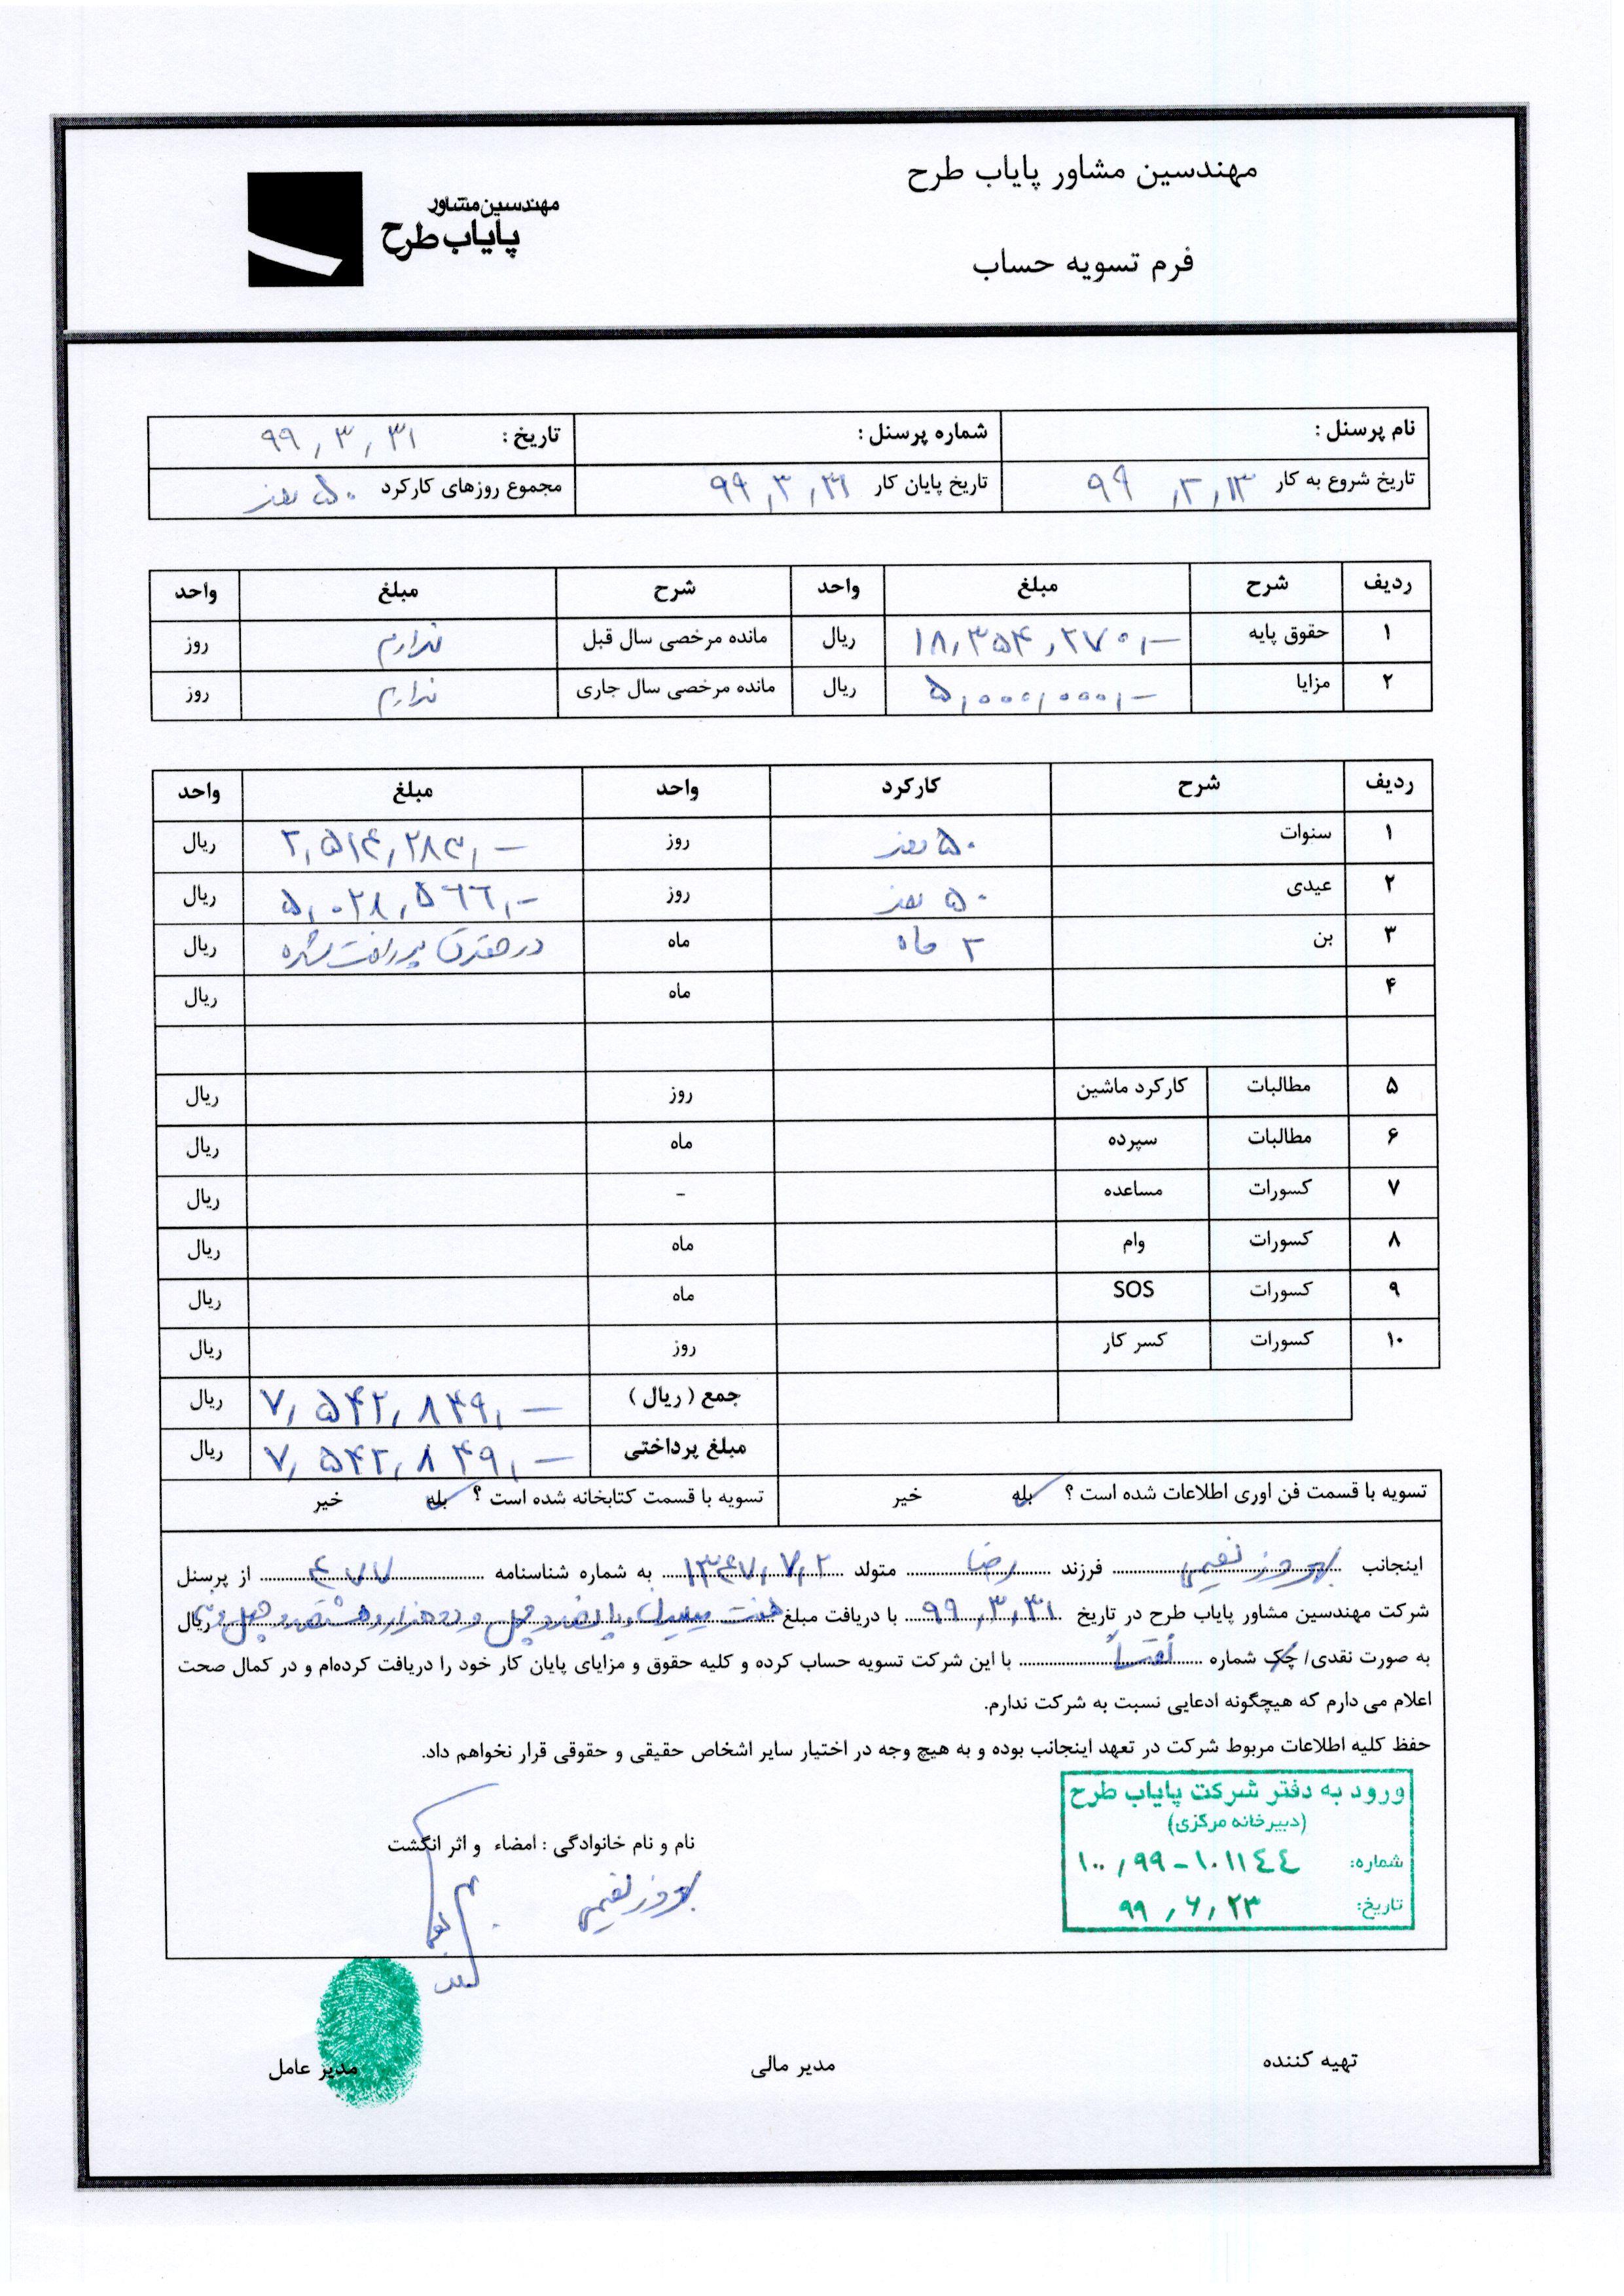 مهندسین مشاور پایاب طرح
مهندسین مشاور
پایاب طرح
فرم تسویه حساب
نام پرسنل : شماره پرسنل : تاریخ : ۹۹,۳,۳۱
تاریخ شروع به کار ۹۹ ,۲,۱۳ تاریخ پایان کار ۹۹,۳,۳۱ مجموع روزهای کارکرد ۵۰ روز
ردیف شرح مبلغ واحد شرح مبلغ واحد
۱ حقوق پایه ۱۸,۳۵۴,۲۷۰,- ریال مانده مرخصی سال قبل ندارم روز
۲ مزایا ۵,۰۰۰,۰۰۰,- ریال مانده مرخصی سال جاری ندارم روز
ردیف شرح کارکرد واحد مبلغ واحد
۱ سنوات ۵۰ روز روز ۲,۵۱۴,۲۸۳,- ریال
۲ عیدی ۵۰ روز روز ۵,۰۲۸,۵۶۶,- ریال
۳ بن ۲ ماه ماه در حقوق پرداخت شده ریال
۴ ماه ریال
۵ مطالبات کارکرد ماشین روز ریال
۶ مطالبات سپرده ماه ریال
۷ کسورات مساعده - ریال
۸ کسورات وام ماه ریال
۹ کسورات SOS ماه ریال
۱۰ کسورات کسر کار روز ریال
جمع ( ریال ) ۷,۵۴۲,۸۴۹,- ریال
مبلغ پرداختی ۷,۵۴۲,۸۴۹,- ریال
تسویه با قسمت فن اوری اطلاعات شده است ؟ بله خیر تسویه با قسمت کتابخانه شده است ؟ بله خیر
اینجانب بهروز نعیمی فرزند رضا متولد ۱۳۴۷,۷,۲ به شماره شناسنامه ۴۷۷ از پرسنل
شرکت مهندسین مشاور پایاب طرح در تاریخ ۹۹,۳,۳۱ با دریافت مبلغ هفت میلیون و پانصد و چهل و دو هزار و هشتصد و چهل و نه ریال
به صورت نقدی/ چک شماره نقداً با این شرکت تسویه حساب کرده و کلیه حقوق و مزایای پایان کار خود را دریافت کرده‌ام و در کمال صحت
اعلام می دارم که هیچگونه ادعایی نسبت به شرکت ندارم.
حفظ کلیه اطلاعات مربوط شرکت در تعهد اینجانب بوده و به هیچ وجه در اختیار سایر اشخاص حقیقی و حقوقی قرار نخواهم داد.
ورود به دفتر شرکت پایاب طرح
(دبیرخانه مرکزی)
شماره: ۱۰۰,۹۹-۱۰۱۱۴۴
تاریخ: ۹۹,۶,۲۳
نام و نام خانوادگی : امضاء و اثر انگشت
بهروز نعیمی
تهیه کننده مدیر مالی مدیر عامل